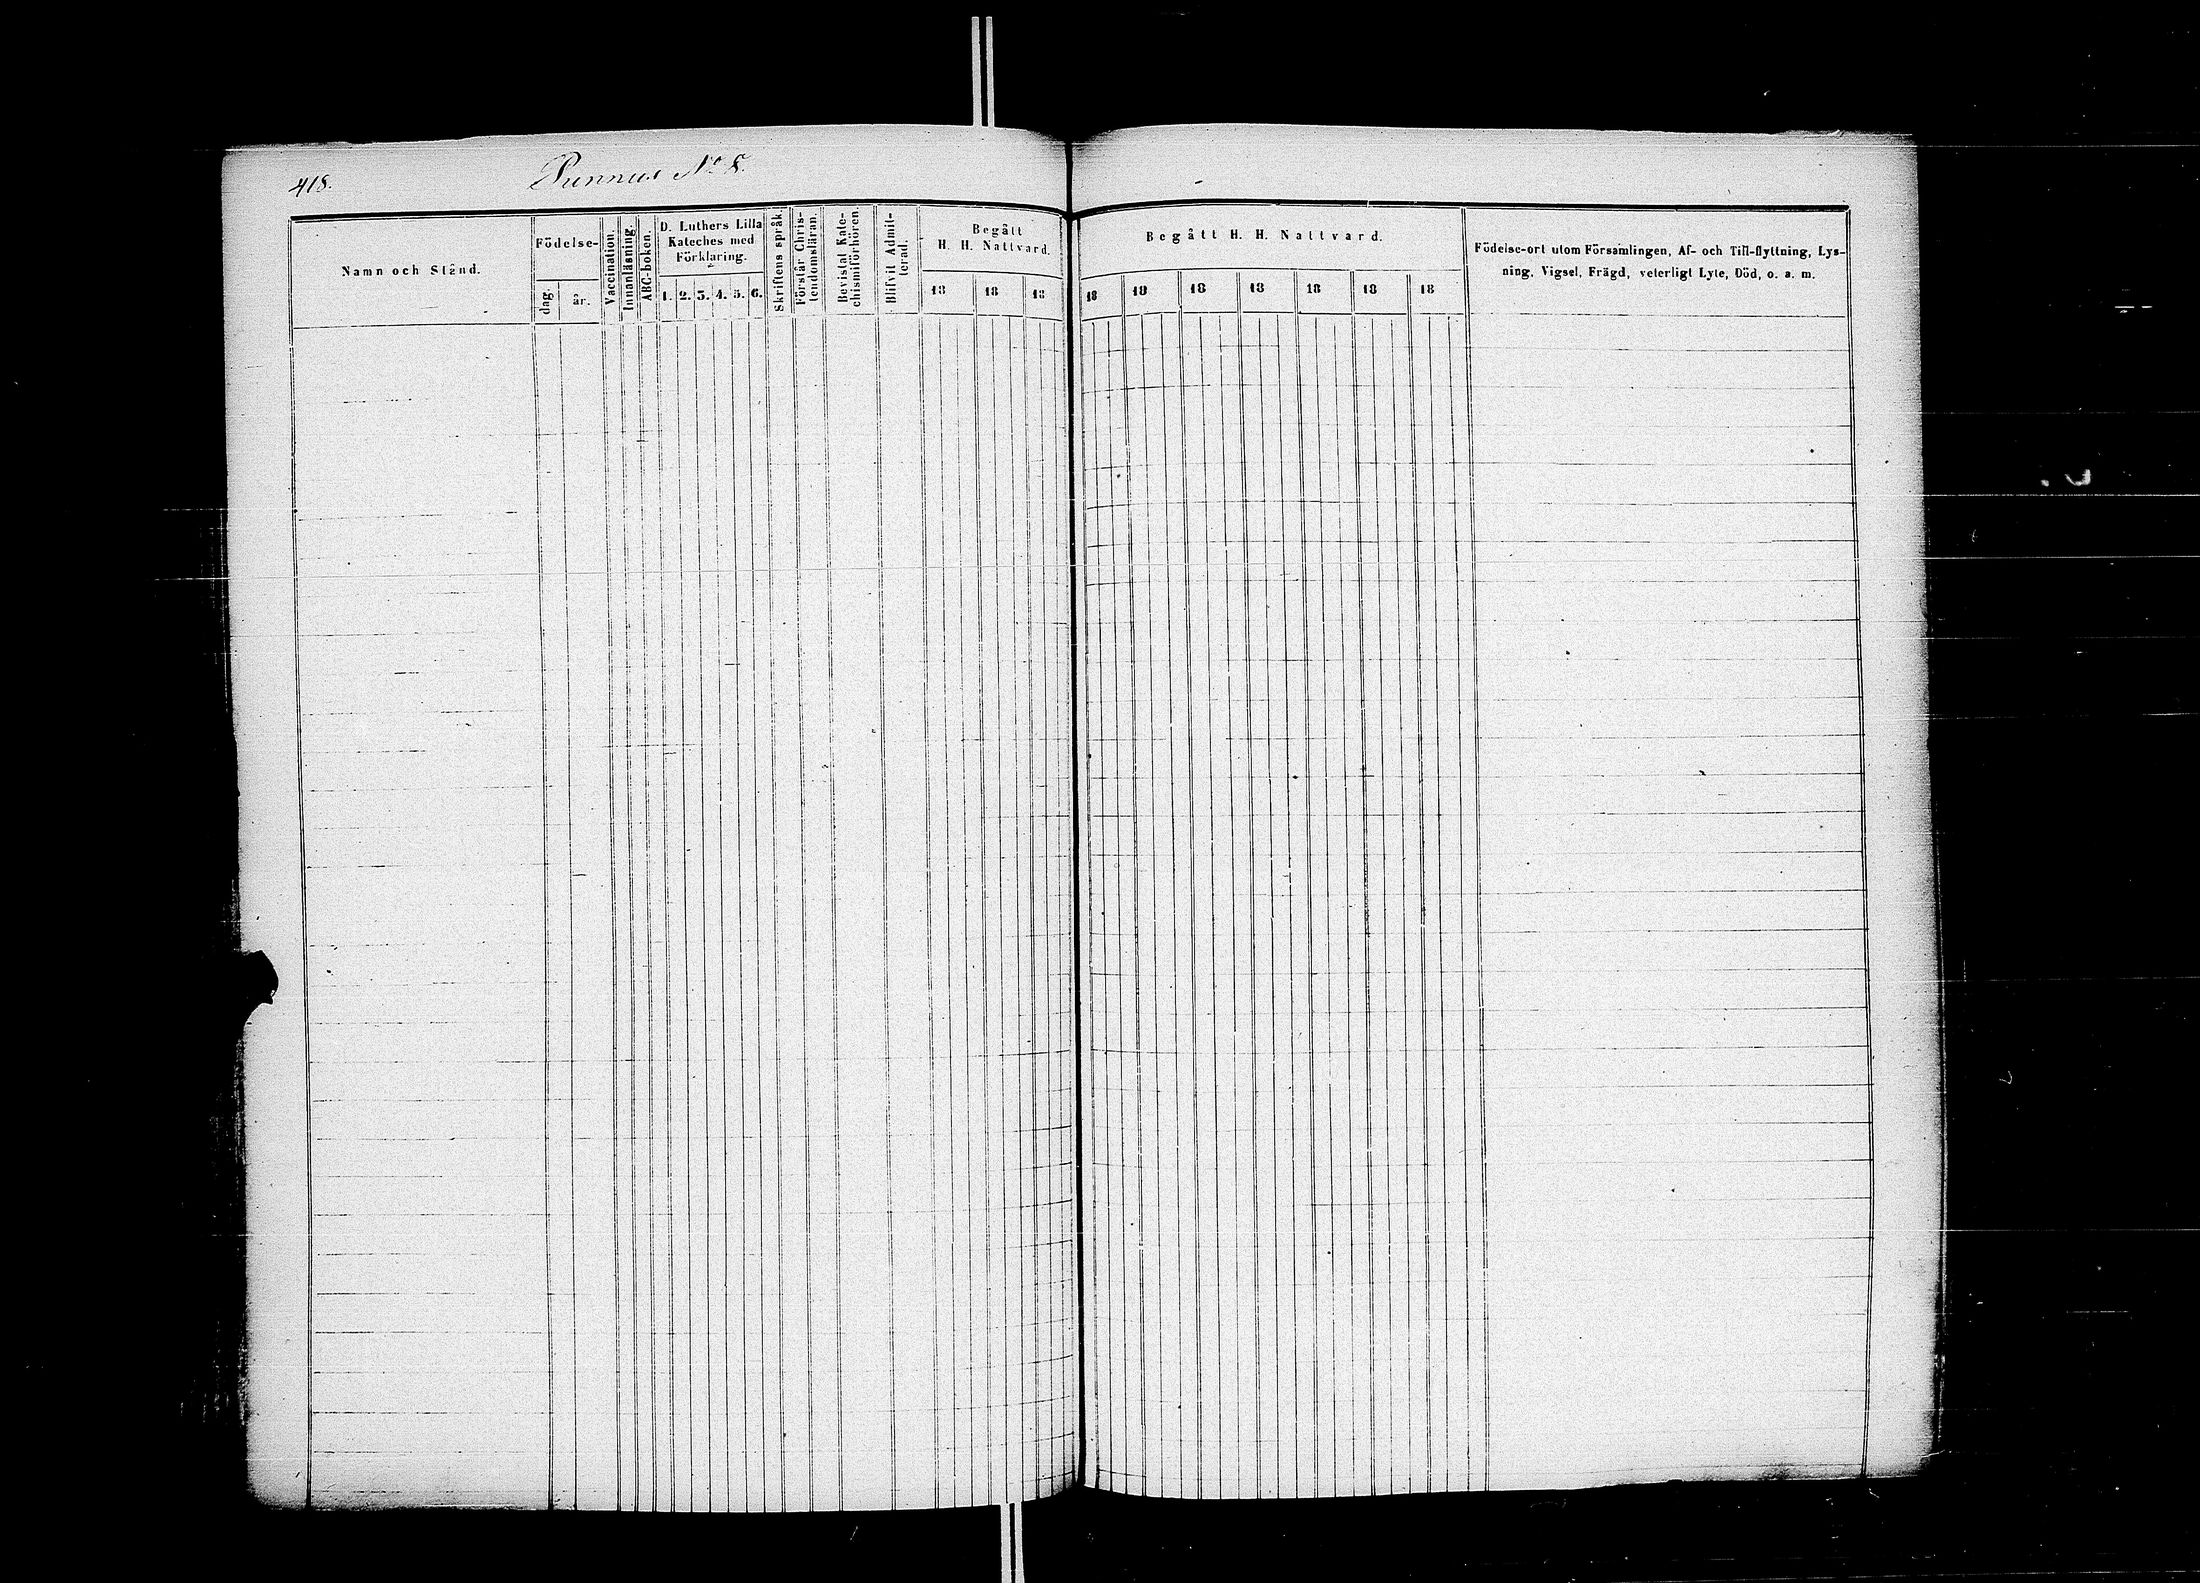 418.
Punnus No 8.
Namn och Stånd.
Födelse-
dag.
år.
Vaccination.
Innanläsning.
ABC-boken.
D. Luthers Lilla
Kateches med
Förklaring.
1. 2. 3. 4. 5. 6.
Skriftens språk.
Förstår Chris-
tendomsläran.
Bevistat Kate-
chismiförhören.
Blifvit Admit-
terad.
Begått
H. H. Nattvard.
18 18 18
Begått H. H. Nattvard.
18 18 18 18 18 18 18
Födelse-ort utom Församlingen, Af- och Till-flyttning, Lys-
ning, Vigsel, Frägd, veterligt Lyte, Död, o. a. m.